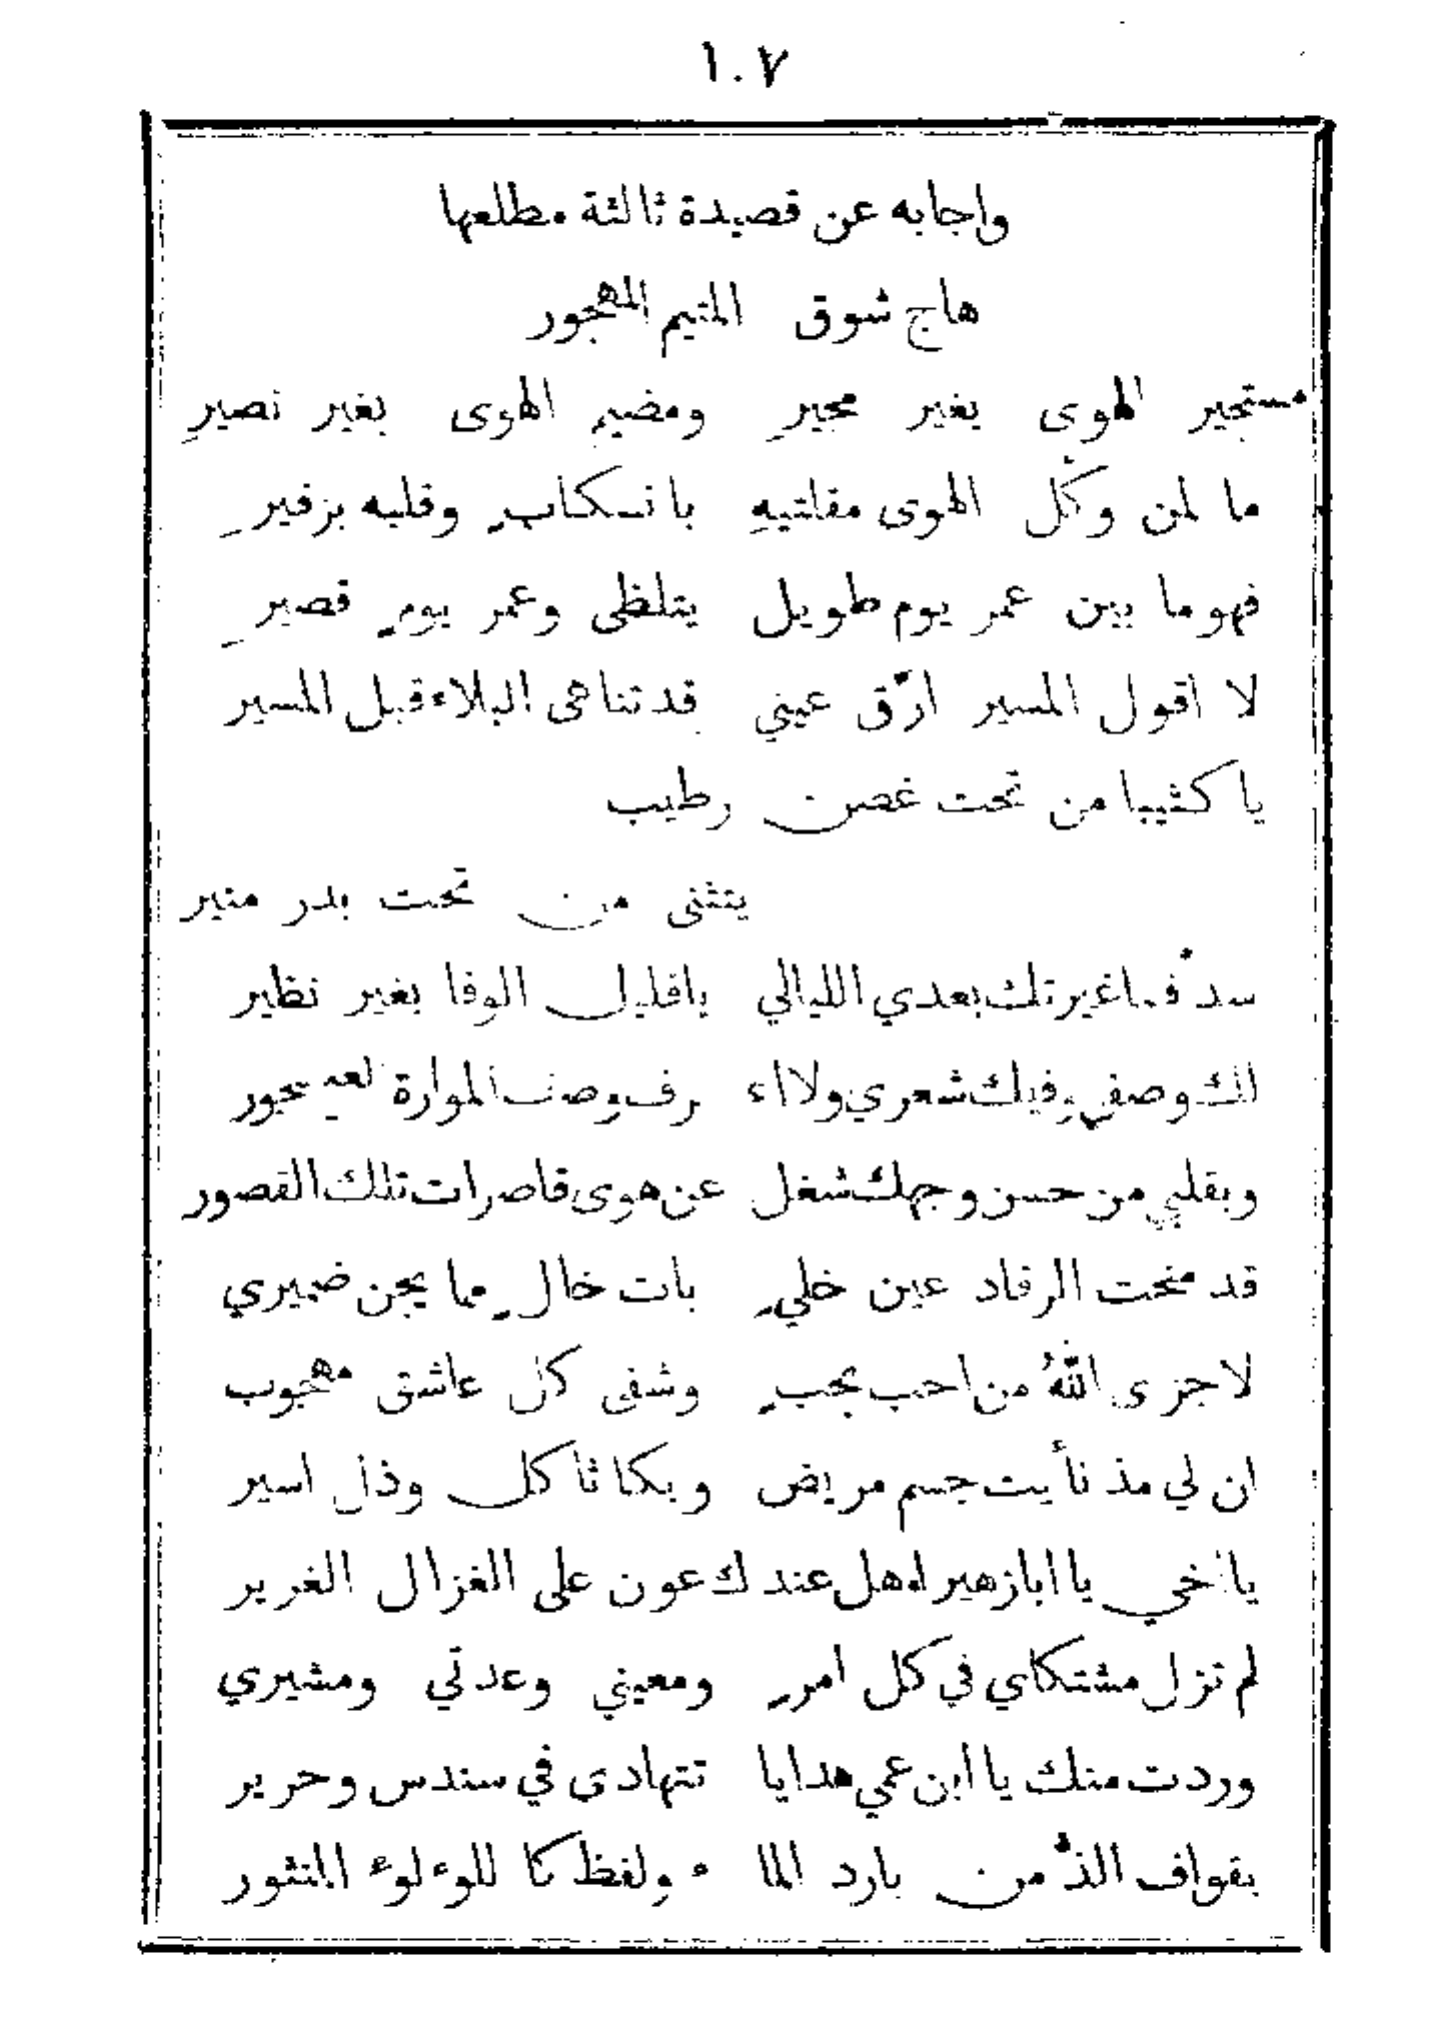 ١٠٧
واجابه عن قصيدة ثالثة مطلعها
هاج شوق المتيم المهجور
مستجير الهوى بغير مجيرِ ومضيم الهوى بغير نصيرِ
ما لمن وكّل الهوى مقلتيهِ بانسكابٍ وقلبه بزفيرِ
فهو ما بين عمر يوم طويل يتلظى وعمر يومٍ قصيرِ
لا اقول المسير ارّق عيني قد تناهى البلاء قبل المسير
يا كثيبا من تحت غصن رطيب
يتثنى من تحت بدر منير
غيرتك بعدي الليالي ياقليل الوفا بغير نظير
لك وصفي وفيك شعري ولااء رف وصف الموارة
وبقلبي من حسن وجهك شغل عن هوى قاصرات تلك القصور
قد منحت الرقاد عين خليٍ بات خالٍ مما يجن ضميري
لا جزى اللهُ من احب بحبٍ وشفى كل عاشق مهجوب
ان لي مذ نأيت جسم مريض وبكا ثاكل وذل اسير
يا اخي يا ابا زهيراء هل عندك عون على الغزال الغرير
لم تزل مشتكاي في كل امرٍ ومعيني وعدتي ومشيري
وردت منك يا ابن عمي هدايا تتهادى في سندس وحرير
بقواف الذّ من بارد الماء ولفظ كاللوءلوء المنثور